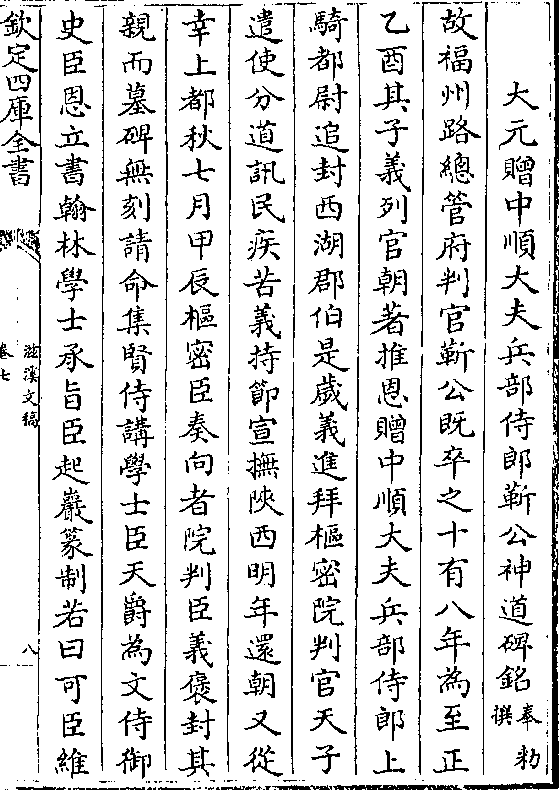 大元贈中順大夫兵部侍郎靳公神道碑銘奉勑撰
故福州路總管府判官靳公既卒之十有八年為至正
乙酉其子義列官朝著推恩贈中順大夫兵部侍郎上
騎都尉追封西湖郡伯是歲義進拜樞密院判官天子
遣使分道訊民疾苦義持節宣撫陜西明年還朝又從
幸上都秋七月甲辰樞密臣奏向者院判臣義褒封其
親而墓碑無刻請命集賢侍講學士臣天爵為文侍御
史臣恩立書翰林學士承旨臣起巖篆制若曰可臣維
欽定四庫全書
滋溪文稿
卷七
八